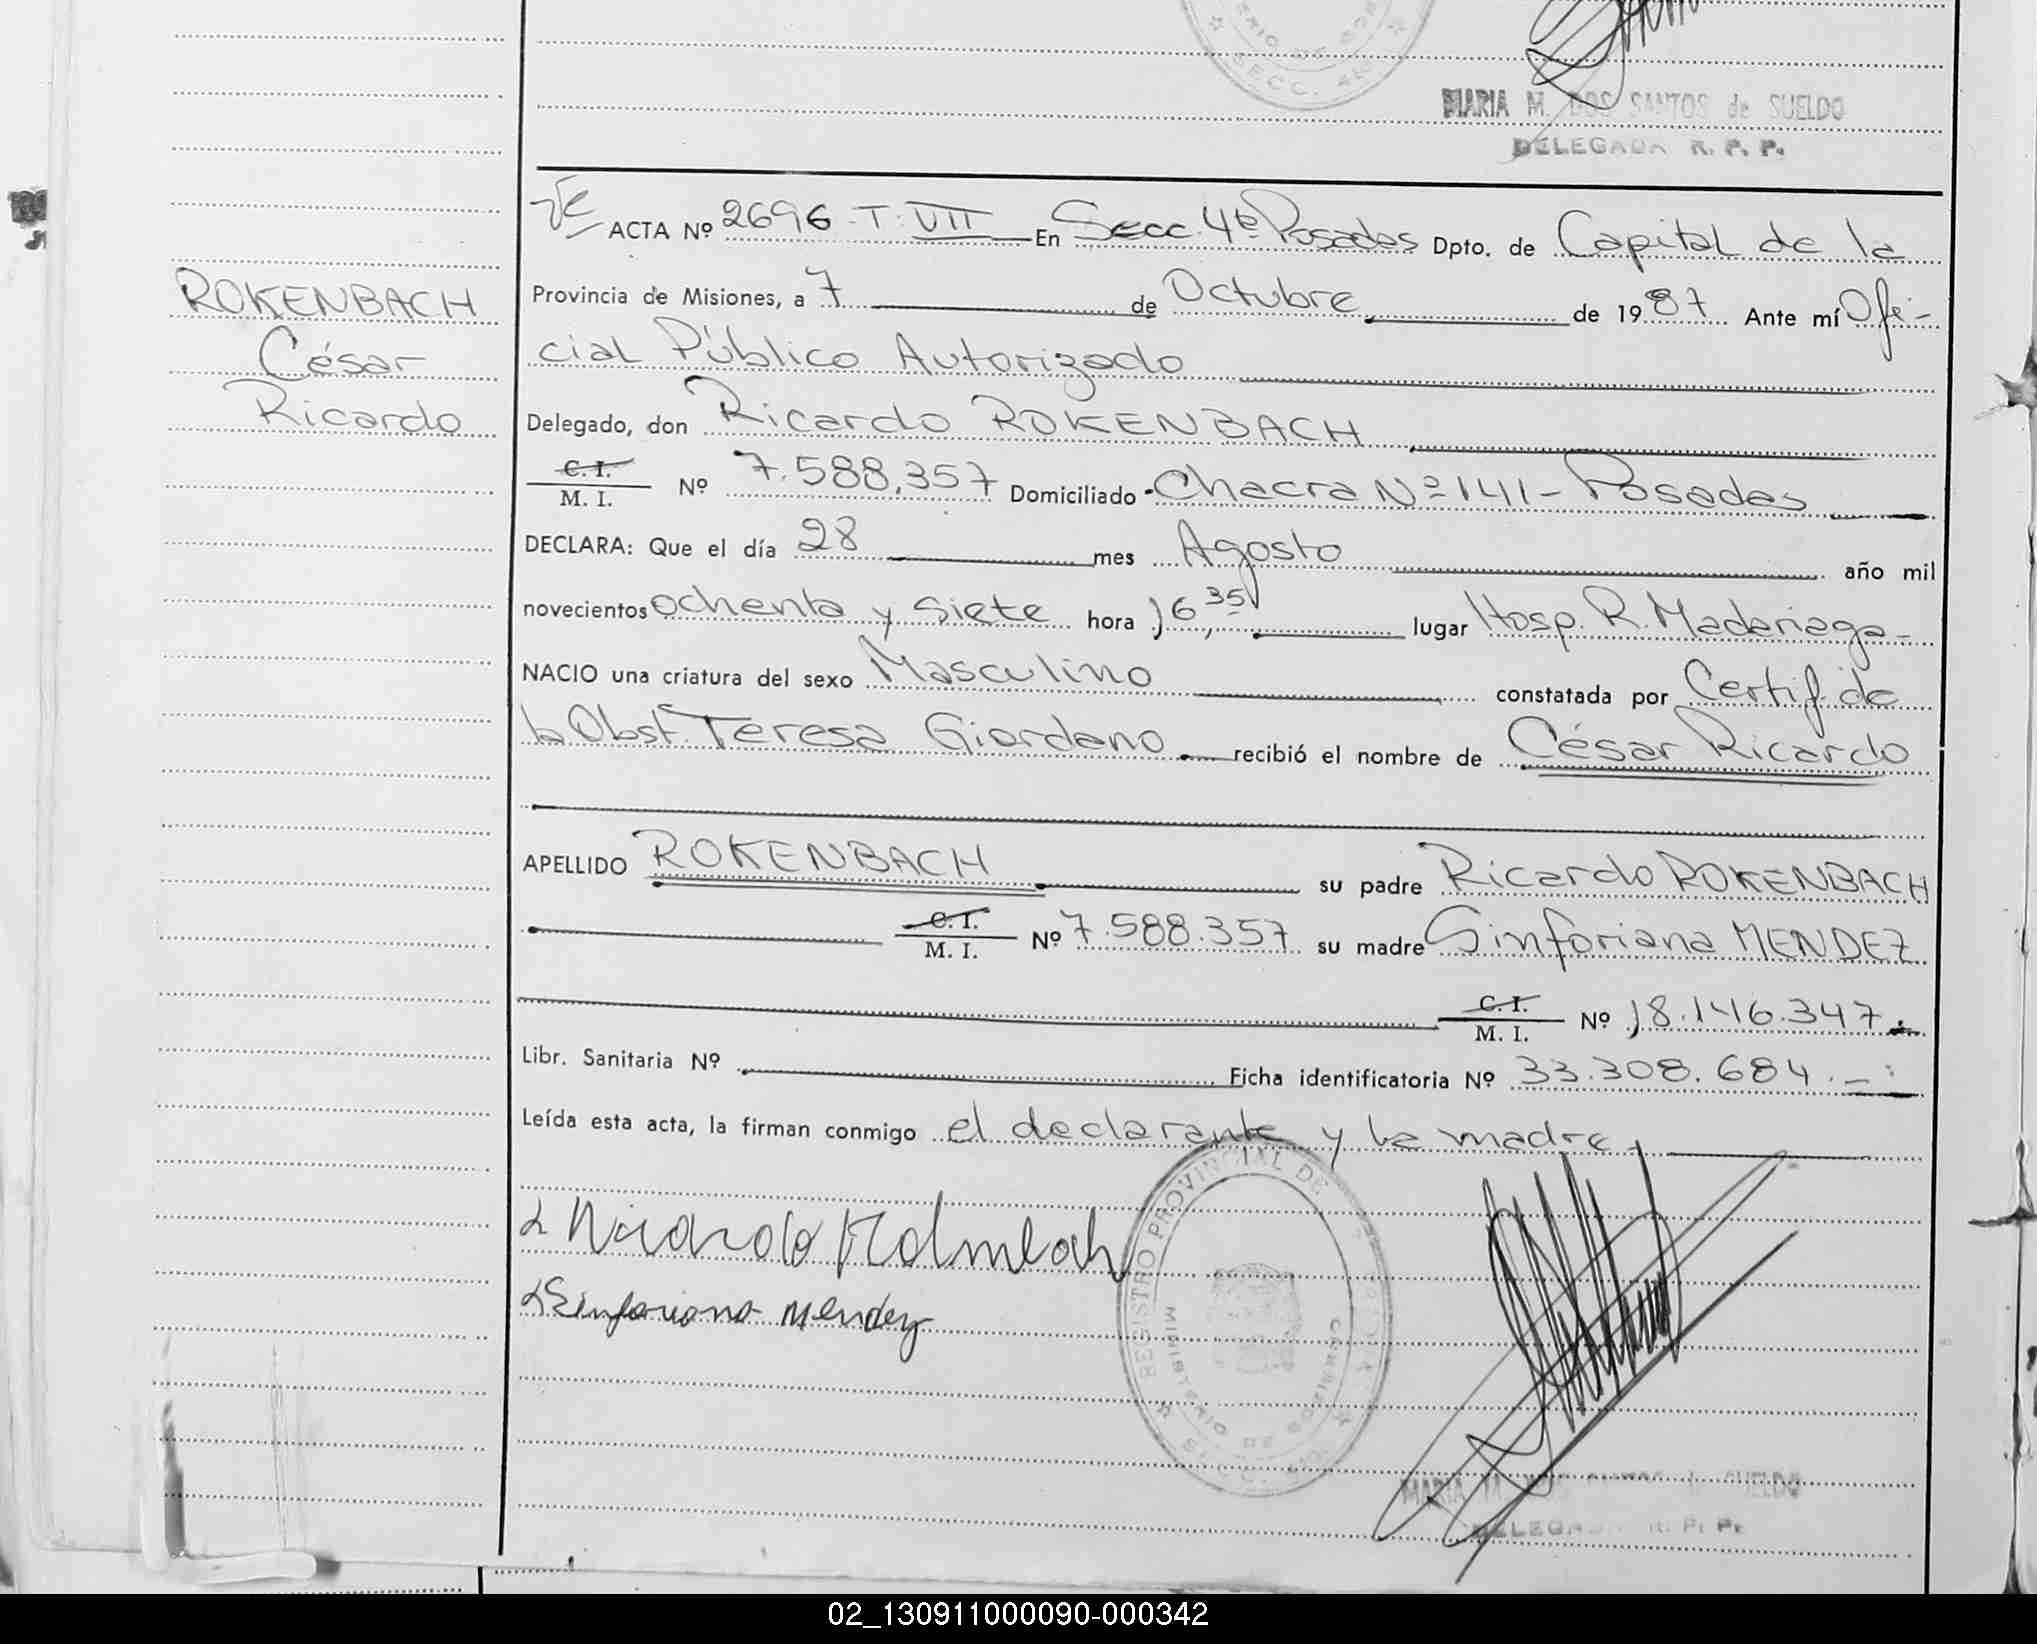 SECC. 4a.
MARIA M. DOS SANTOS de SUELDO
DELEGADA R. P. P.
ACTA Nº 2696 T. VII En Secc. 4ta Posadas Dpto. de Capital de la
ROKENBACH
César
Ricardo
Provincia de Misiones, a 7 de Octubre de 1987 Ante mí Ofi-
cial Público Autorizado
Delegado, don Ricardo ROKENBACH
C. I.
M. I. Nº 7.588.357 Domiciliado Chacra Nº 141 - Posadas
DECLARA: Que el día 28 mes Agosto año mil
novecientos ochenta y siete hora 16,35 lugar Hosp. R. Madariaga -
NACIO una criatura del sexo Masculino constatada por Certif. de
la Obst. Teresa Giordano recibió el nombre de César Ricardo
APELLIDO ROKENBACH su padre Ricardo ROKENBACH
C. I.
M. I. Nº 7.588.357 su madre Sinforiana MENDEZ
C. I.
M. I. Nº 18.146.347.
Libr. Sanitaria Nº Ficha identificatoria Nº 33.308.684. -
Leída esta acta, la firman conmigo el declarante y la madre,
REGISTRO PROVINCIAL DE
MINISTERIO DE GOBIERNO
Sinforiana Mendez
MARIA M. DOS SANTOS de SUELDO
DELEGADA R. P. P.
02_130911000090-000342